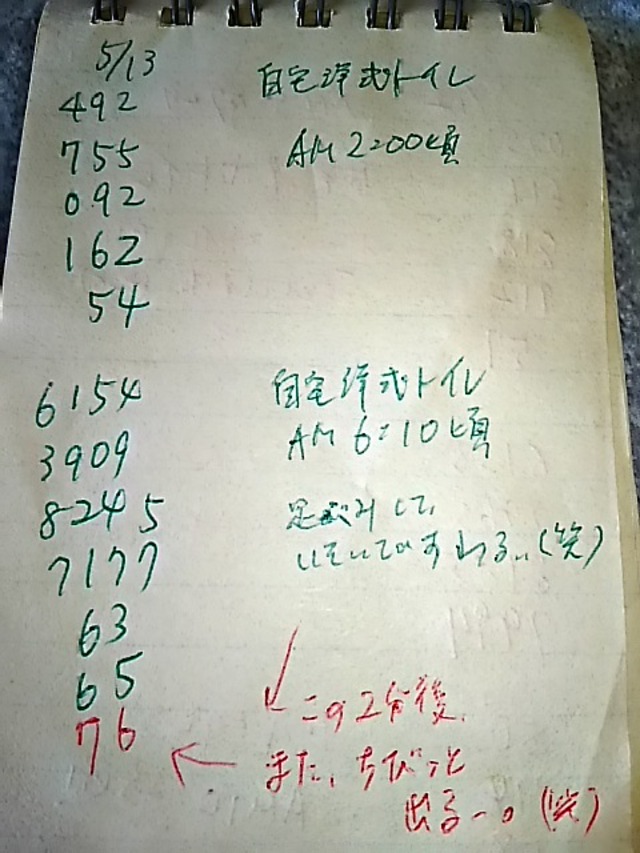 5/13
492 自宅洋式トイレ
755 AM 2:00頃
092
162
54
6154 自宅洋式トイレ
3909 AM 6:10頃
8245 足ぶみして、
7177 いそいですわる、、(笑)
63
65 この2分後、
76 また、ちびっと
出るー。(笑)